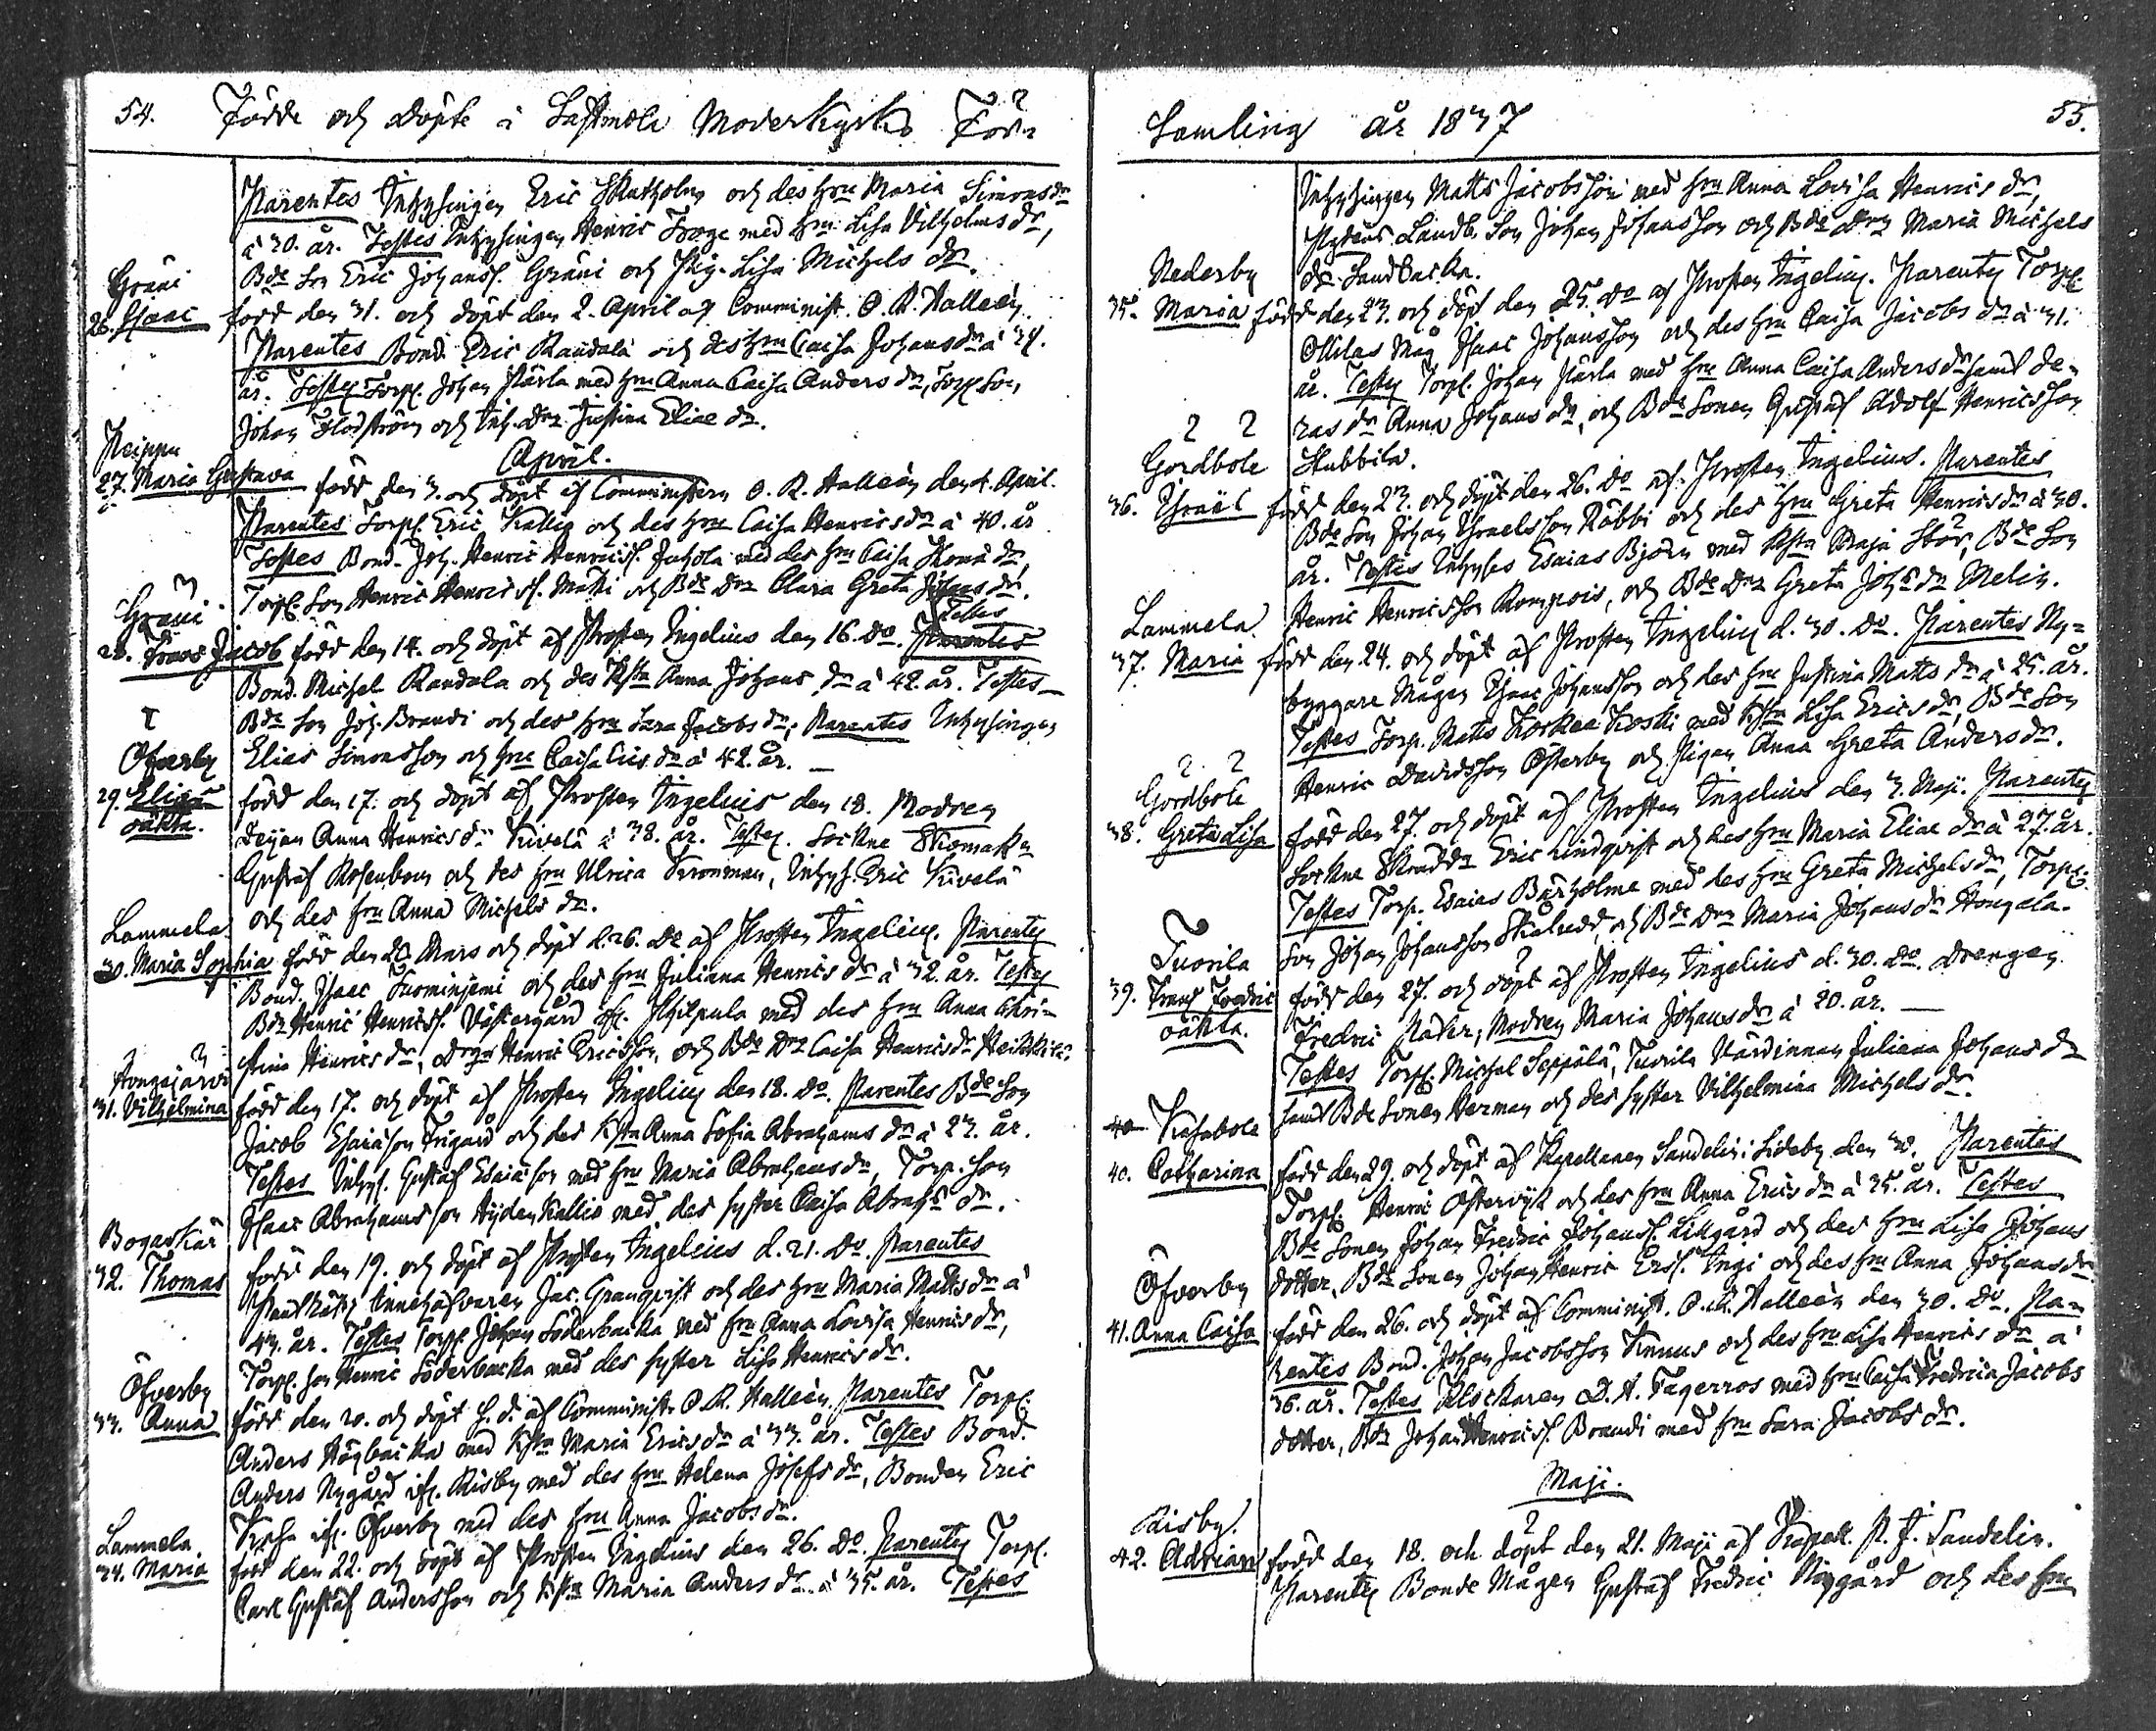 54. Födde och döpte i Lappmola Moderkyrko För-
Parentes Inhysingen Eric Skatholm och des hru Maria Simonsdr
à 30. år. Testes Inhysingen Henric Froge med hru Lisa Vilhelms dr,
Bde Son Eric Johanss. Gräni och Pig. Lisa Michels dr.
Gräni
26. Isaac född den 31. och döpt den 2. April af Comminist. O. R. Halleèn
Parentes Bond. Eric Randala och des hru Caisa Johans dr à 34.
år. Testes Torp. Johan Pärla med hru Anna Caisa Anders dr, Torp. Son
Johan Flodström och Inh. Dr Justina Eliae dr.
April.
27. Maria Gustava född den 3. och döpt af Comministern O. R. Halleèn den 4. April.
Parentes Torp. Eric Kallio och des hru Caisa Henricsdr à 40. år
Testes Bond. Joh. Henric Henricss. Juhola med des hru Caisa Thomæ dr,
Torp. Son Henric Henricss. Matti och Bde Dr Clara Greta Johans dr.
Gräni Testes
28. Frans Jacob född den 14. och döpt af Prosten Ingelius den 16. Do. Parentes
Bond. Michel Randala och des Hstu Anna Johans dr à 42. år. Testes
Bde Son Joh. Brandi och des hru Sara Jacobs dr; Parentes Inhysingen
Elias Simonsson och hru Caisa dr à 42. år.
Öfverby
29. Elias född den 17. och döpt af Prosten Ingelius den 18. Modren
oäkta. Pigan Anna Henrics dr Kivelä à 38. år. Testes. Sockne Skomak
Gustaf Rosenbom och des hru Ulrica Kronman, Inhys. Eric Kivelä
och des hru Anna Michels dr.
Lammela
30. Maria Sophia född den Mars och döpt d. 26. Do af Prosten Ingelius. Parentes
Bond. Isaac Suominjemi och des hru Juliana Henrics dr à 32. år. Testes
Bde Henric Henricss. Västergård med des hru Anna Chri-
stina Henrics dr, Drgn Henric Ericsson, och Bde Dr Caisa Henrics dr Heikkilä.
Hongajärvi
31. Vilhelmina född den 17. och döpt af Prosten Ingelius den 18. Do. Parentes Bde Son
Jacob Esaiason Frigård och des Hstu Anna Sofia Abrahams dr à 23. år.
Testes Inhys. Gustaf Esaiason med hru Maria Abrahams dr, Torp. Son
Isaac Abrahamsson Hyden Kallio med des syster Caisa Abrah. dr.
Bogaskär
32. Thomas född den 19. och döpt af Prosten Ingelius d. 21. Do. Parentes
Innehafvaren Jac. Granqvist och des hru Maria Matts dr à
43. år. Testes Torp. Johan Söderbacka med hru Anna Lovisa Henrics dr,
Torp. Son Henric Söderbacka med des syster Lisa Henrics dr.
Öfverby
33. Anna född den 20. och döpt s. d. af Comminist. O. R. Halleèn. Parentes Torp.
Anders Högbacka med Hstu Maria Erics dr à 33. år. Testes Bond.
Anders Nygård ifr. Risby med des hru Helena Josefs dr, Bonden Eric
ifr. Öfverby med des hru Anna Jacobs dr.
Lammela.
34. Maria född den 22. och döpt af Prosten Ingelius den 26. Do. Parentes Torp.
Carl Gustaf Andersson och Hstu Maria Anders dr à 35. år. Testes
Samling år 1837 55.
Inhysingen Matts Jacobsson med hru Anna Lovisa Henrics dr,
Landb. Son Johan Johansson och Bde Dr Maria Michels
dr Sandbacka.
Nederby
35. Maria född den 23. och döpt den 25. Do af Prosten Ingelius. Parentes Torp.
Ollilas Måg Isaac Johansson och des hru Caisa Jacobs dr à 31.
år. Testes Torp. Johan Pärla med hru Anna Caisa Anders dr samt de-
ras dr Anna Johans dr, och Bde Sonen Gustaf Adolf Henricsson
Stubbila.
Gördbole
36. Israël född den 23. och döpt den 26. Do af Prosten Ingelius. Parentes
Bde Son Johan Israelsson Råbbi och des hru Greta Henrics dr à 30.
år. Testes Inhyses Esaias Björn med Hstu Maja Stör, Bde Son
Henric Henricsson Rompois, och Bde Dr Greta Joh. dr Melin.
Lammela.
37. Maria född den 24. och döpt af Prosten Ingelius d. 30. Do. Parentes Ny-
byggare Mågen Isaac Johansson och des hru Justina Matts dr à 25. år.
Testes Torp. Matts Korkea Koski med Hstu Lisa Erics dr, Bde Son
Henric Davidsson Österby och Pigan Anna Greta Anders dr.
Gördbole
38. Greta Lisa född den 27. och döpt af Prosten Ingelius den 3. Maji. Parentes
Sockne Skräddr Eric Lindqvist och des hru Maria Eliae dr à 27. år.
Testes Torp. Esaias Bärholme med des hru Greta Michels dr, Torp.
Son Johan Johansson och Bde Dr Maria Johans dr Hongela.
Tuorila
39. Frans Fredric född den 27. och döpt af Prosten Ingelius d. 30. Do. Drengen
oäkta. Fredric Nader; Modren Maria Johans dr à 20. år.
Testes Torp. Michel Seppälä, Tuorila Värdinnan Juliana Johans dr
samt Bde Sonen Herman och des syster Vilhelmina Michels dr.
Kasabole
40. Catharina född den 29. och döpt af Kapellanen Sandelin i Sideby den 30. Parentes
Torp. Henric Östervik och des hru Anna Erics dr à 35. år. Testes
Bde Sonen Johan Fredric Johanss. Lillgård och des hru Lisa Johans
dotter, Bde Sonen Johan Henric Erss. Ingi och des hru Anna Johans dr
Öfverby
41. Anna Caisa född den 26. och döpt af Comminist. O. R. Halleèn den 30. Do. Pa-
rentes Bond. Johan Jacobsson Kinnus och des hru Lisa Henrics dr à
36. år. Testes Klockaren D. A. Fagerros med hru Caisa Fredrica Jacobs
dotter, Bde Johan Henricss. Brandi med hru Sara Jacobs dr.
Maji.
Risby.
42. Adrian född den 18. och döpt den 21. Maji af Kapell. P. J. Sandelin.
Parentes Bonde Mågen Gustaf Fredric Nygård och des hru